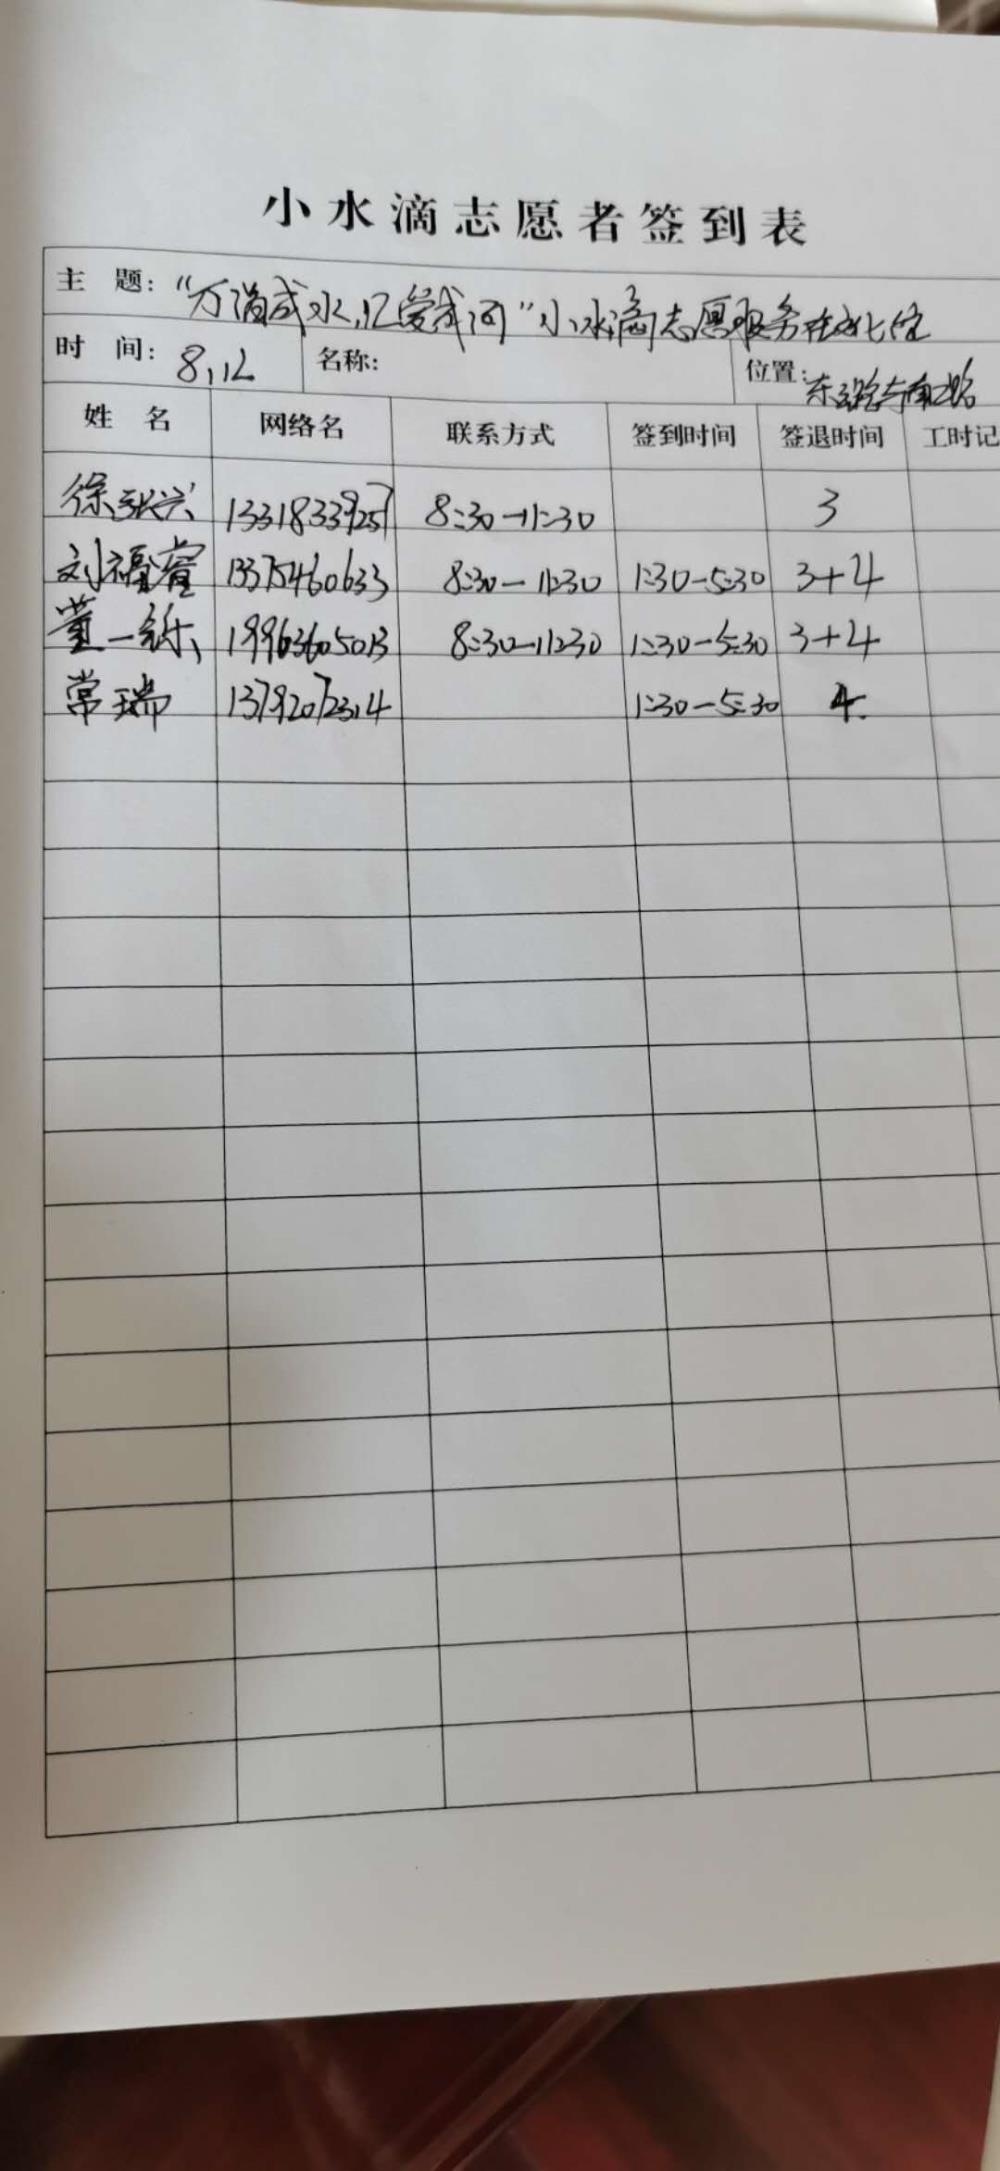 小水滴志愿者签到表
主 题："万滴成水,亿爱成河"小水滴志愿服务在文化
时 间：8.12 名称： 位置：东三路与南二路
姓 名 网络名 联系方式 签到时间 签退时间 工时记
徐 兴 13318339257 8:30-11:30 3
刘福睿 13375460633 8:30-11:30 1:30-5:30 3+4
董一 19963605013 8:30-11:30 1:30-5:30 3+4
常瑞 13792072314 1:30-5:30 4